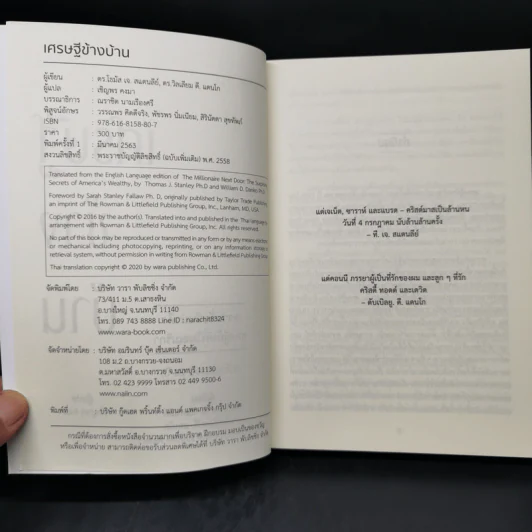 เศรษฐีข้างบ้าน
ผู้เขียน : ดร.โธมัส เจ. สแตนลีย์, ดร.วิลเลียม ดี. แดนโก
ผู้แปล : เชิญพร คงมา
บรรณาธิการ : ณราชิต นามเรืองศรี
พิสูจน์อักษร : วรรณพร คิดดีจริง, พัชรพร นิ่มเนียม, สิรินัดดา สุขทัพภ์
ISBN : 978-616-8158-80-7
ราคา : 300 บาท
พิมพ์ครั้งที่ 1 : มีนาคม 2563
สงวนลิขสิทธิ์ : พระราชบัญญัติลิขสิทธิ์ (ฉบับเพิ่มเติม) พ.ศ. 2558
Translated from the English Language edition of The Millionaire Next Door: The Surprising
Secrets of America's Wealthy, by Thomas J. Stanley Ph.D and William D. Danko Ph.D,
Foreword by Sarah Stanley Fallaw Ph. D, originally published by Taylor Trade Publishing,
an imprint of The Rowman & Littlefield Publishing Group, Inc., Lanham, MD, USA.
Copyright © 2016 by the author(s). Translated into and published in the Thai language by
arrangement with Rowman & Littlefield Publishing Group, Inc. All rights reserved.
No part of this book may be reproduced or transmitted in any form or by any means electronic
or mechanical including photocopying, reprinting, or on any information storage or
retrieval system, without permission in writing from Rowman & Littlefield Publishing Group.
Thai translation copyright © 2020 by wara publishing Co., Ltd.
จัดพิมพ์โดย : บริษัท วารา พับลิชชิ่ง จำกัด
73/411 ม.5 ต.เสาธงหิน
อ.บางใหญ่ จ.นนทบุรี 11140
โทร. 089 743 8888 Line ID : narachit8324
www.wara-book.com
จัดจำหน่ายโดย : บริษัท อมรินทร์ บุ๊ค เซ็นเตอร์ จำกัด
108 ม.2 ถ.บางกรวย-จงถนอม
ต.มหาสวัสดิ์ อ.บางกรวย จ.นนทบุรี 11130
โทร. 02 423 9999 โทรสาร 02 449 9500-6
www.naiin.com
พิมพ์ที่ : บริษัท กู๊ดเฮด พริ้นท์ติ้ง แอนด์ แพคเกจจิ้ง กรุ๊ป จำกัด
กรณีที่ต้องการสั่งซื้อหนังสือจำนวนมากเพื่อบริจาค ฝึกอบรม มอบเป็นของขวัญ
หรือเพื่อจำหน่าย สามารถติดต่อขอรับส่วนลดพิเศษได้ที่ บริษัท วารา พับลิชชิ่ง จำกัด
แด่เจเน็ต, ซาราห์ และแบรด – คริสต์มาสเป็นล้านหน
วันที่ 4 กรกฎาคม นับล้านล้านครั้ง
– ที. เจ. สแตนลีย์
แด่คอนนี ภรรยาผู้เป็นที่รักของผม และลูก ๆ ที่รัก
คริสตี้ ทอดด์ และเดวิด
– ดับเบิลยู. ดี. แดนโก